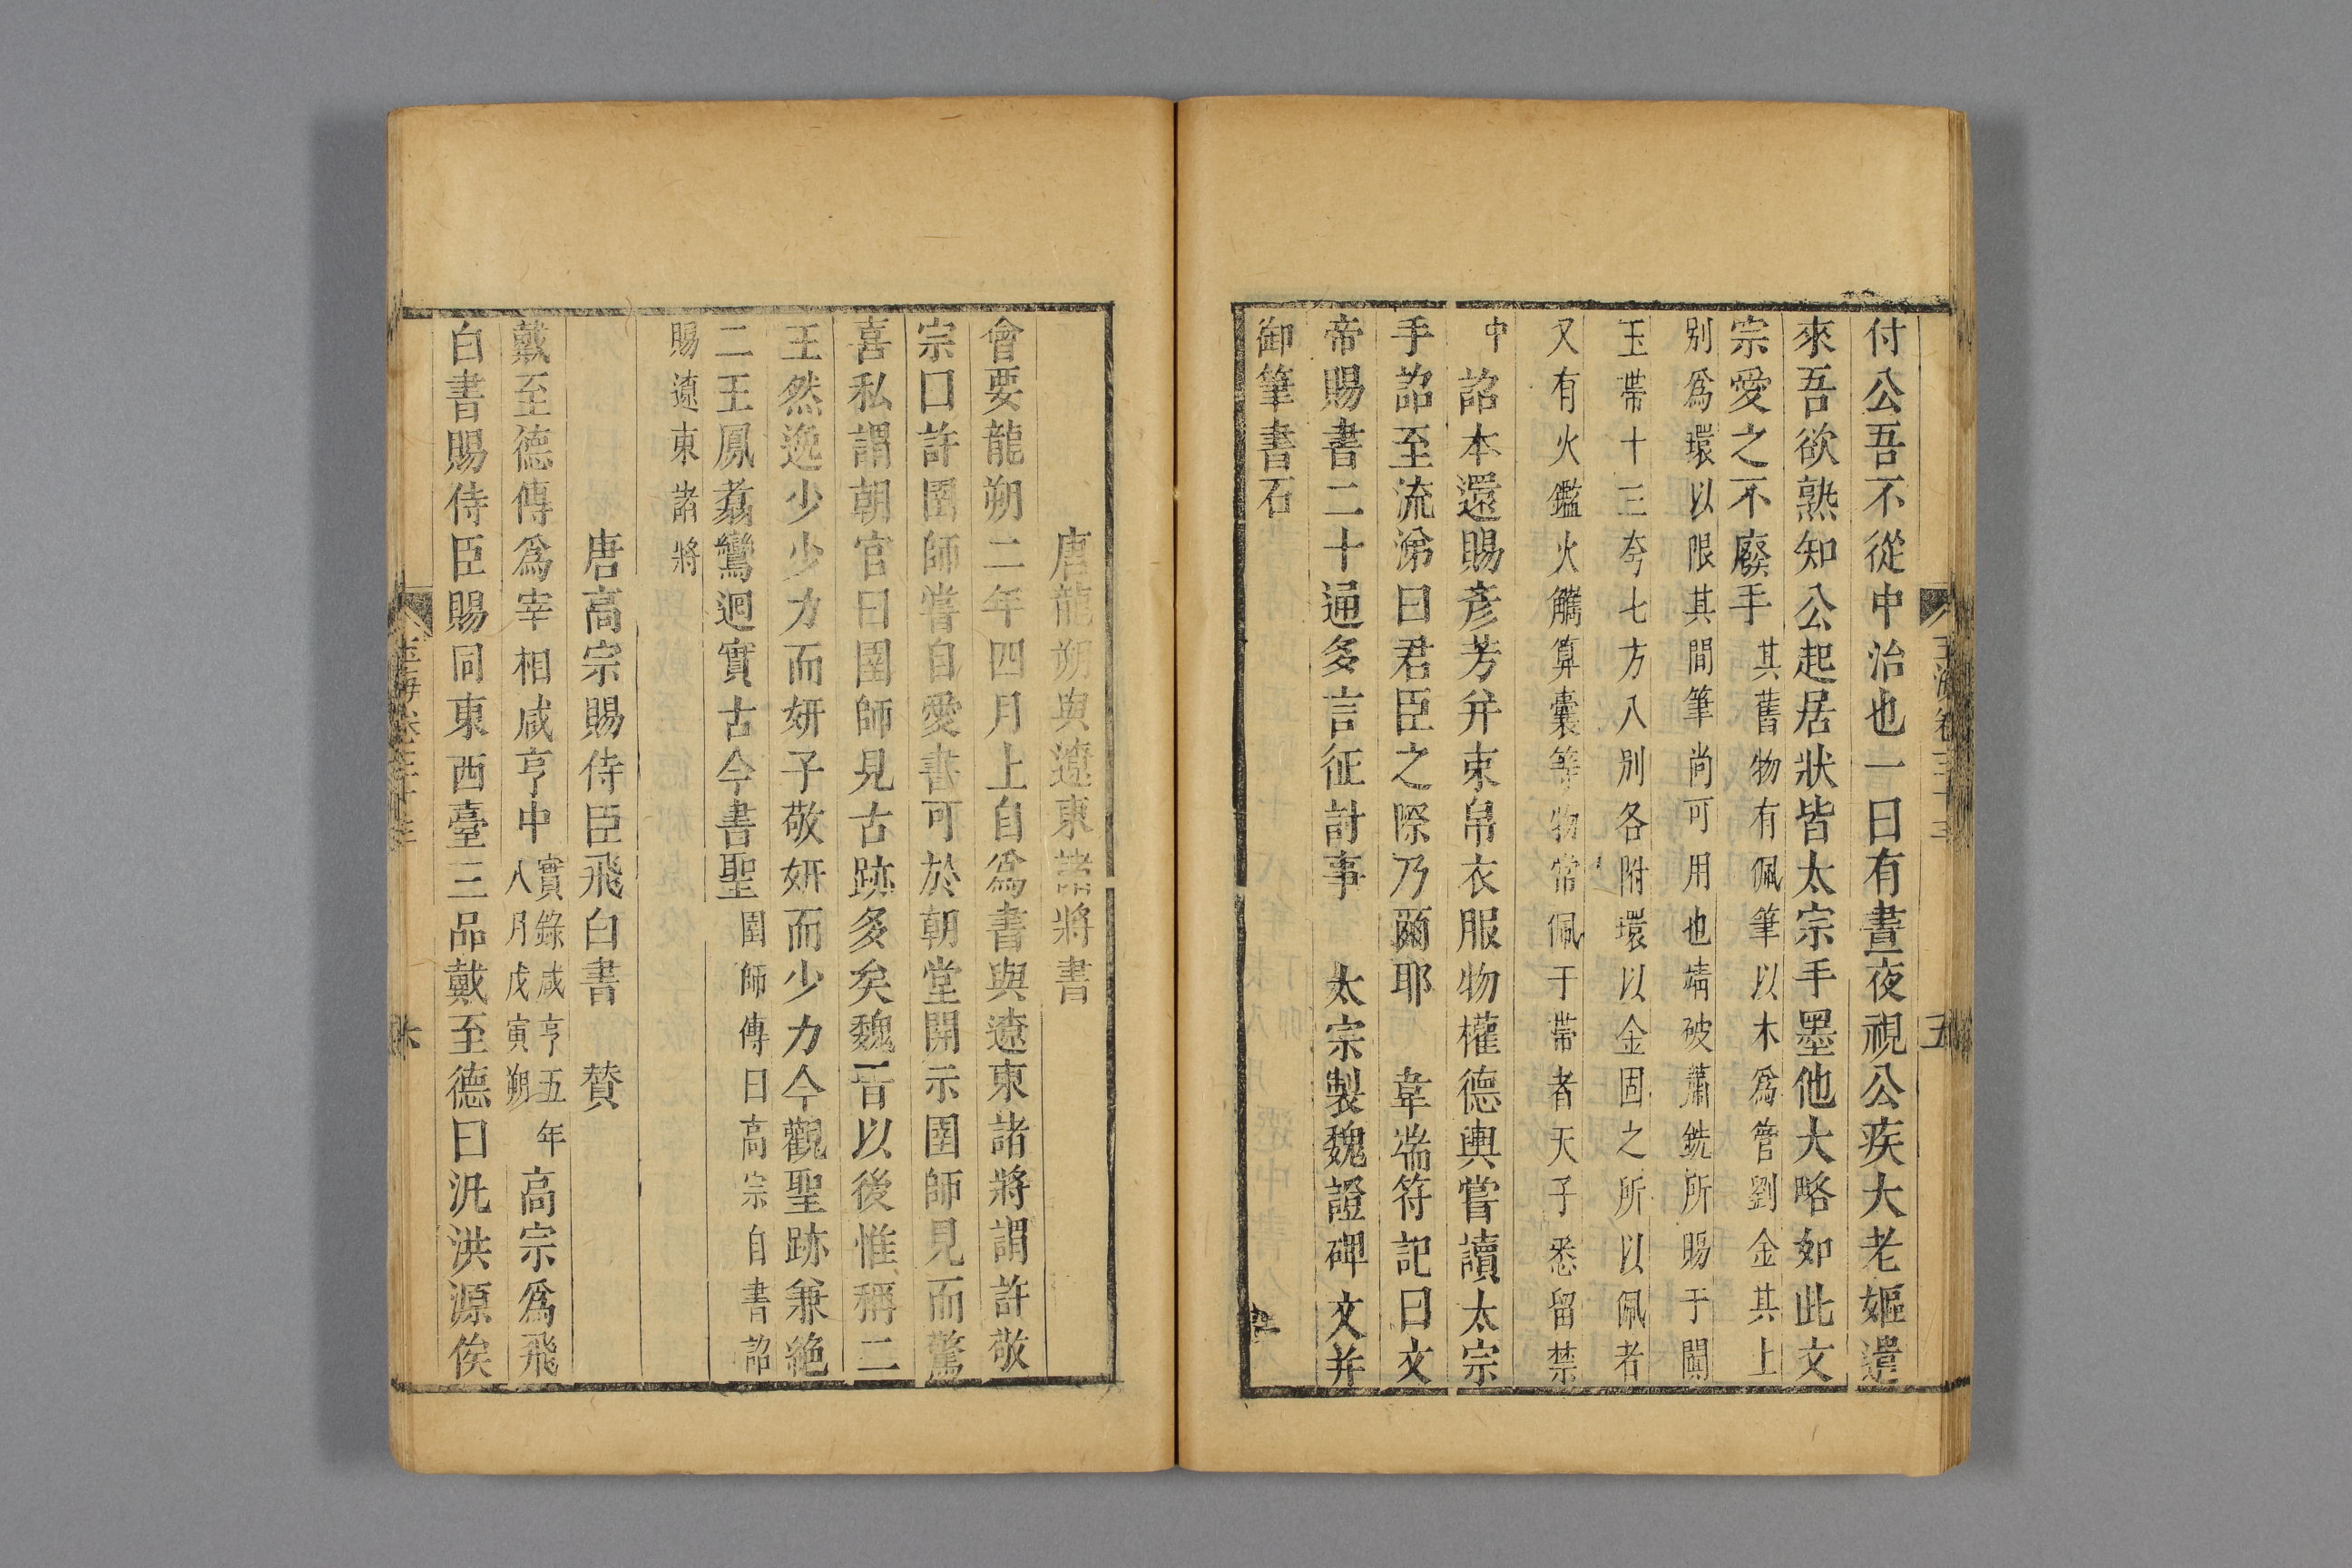 付公吾不從中治也一曰有晝夜視公疾大老嫗遣
來吾欲熟知公起居狀皆太宗手墨他大略如此文
宗愛之不廢手其舊物有佩筆以木爲管劉金其上
别爲環以限其間筆尚可用也靖破蕭銑所賜于闐
玉帶十三夸七方八别各附環以金固之所以佩者
又有火鑑火觿算囊等物常佩于帶者天子悉留禁
中詔本還賜彥芳并束帛衣服物權德輿嘗讀太宗
手詔至流涕曰君臣之際乃爾耶 韋端符記曰文
帝賜書二十通多言征討事 太宗製魏證碑文并
御筆書石
唐龍朔與遼東諸將書
會要龍朔二年四月上自爲書與遼東諸將謂許敬
宗曰許圉師嘗自愛書可於朝堂開示圉師見而驚
喜私謂朝官曰圉師見古跡多矣魏晉以後惟稱二
王然逸少少力而妍子敬妍而少力今觀聖跡兼絶
二王鳳翥鸞迴實古今書聖圉師傳曰高宗自書詔
賜遼東諸將
唐高宗賜侍臣飛白書 贊
戴至德傳爲宰相咸亨中實錄咸亨五年八月戊寅朔高宗爲飛
白書賜侍臣賜同東西臺三品戴至德曰汎洪源俟
玉海卷三十三
五